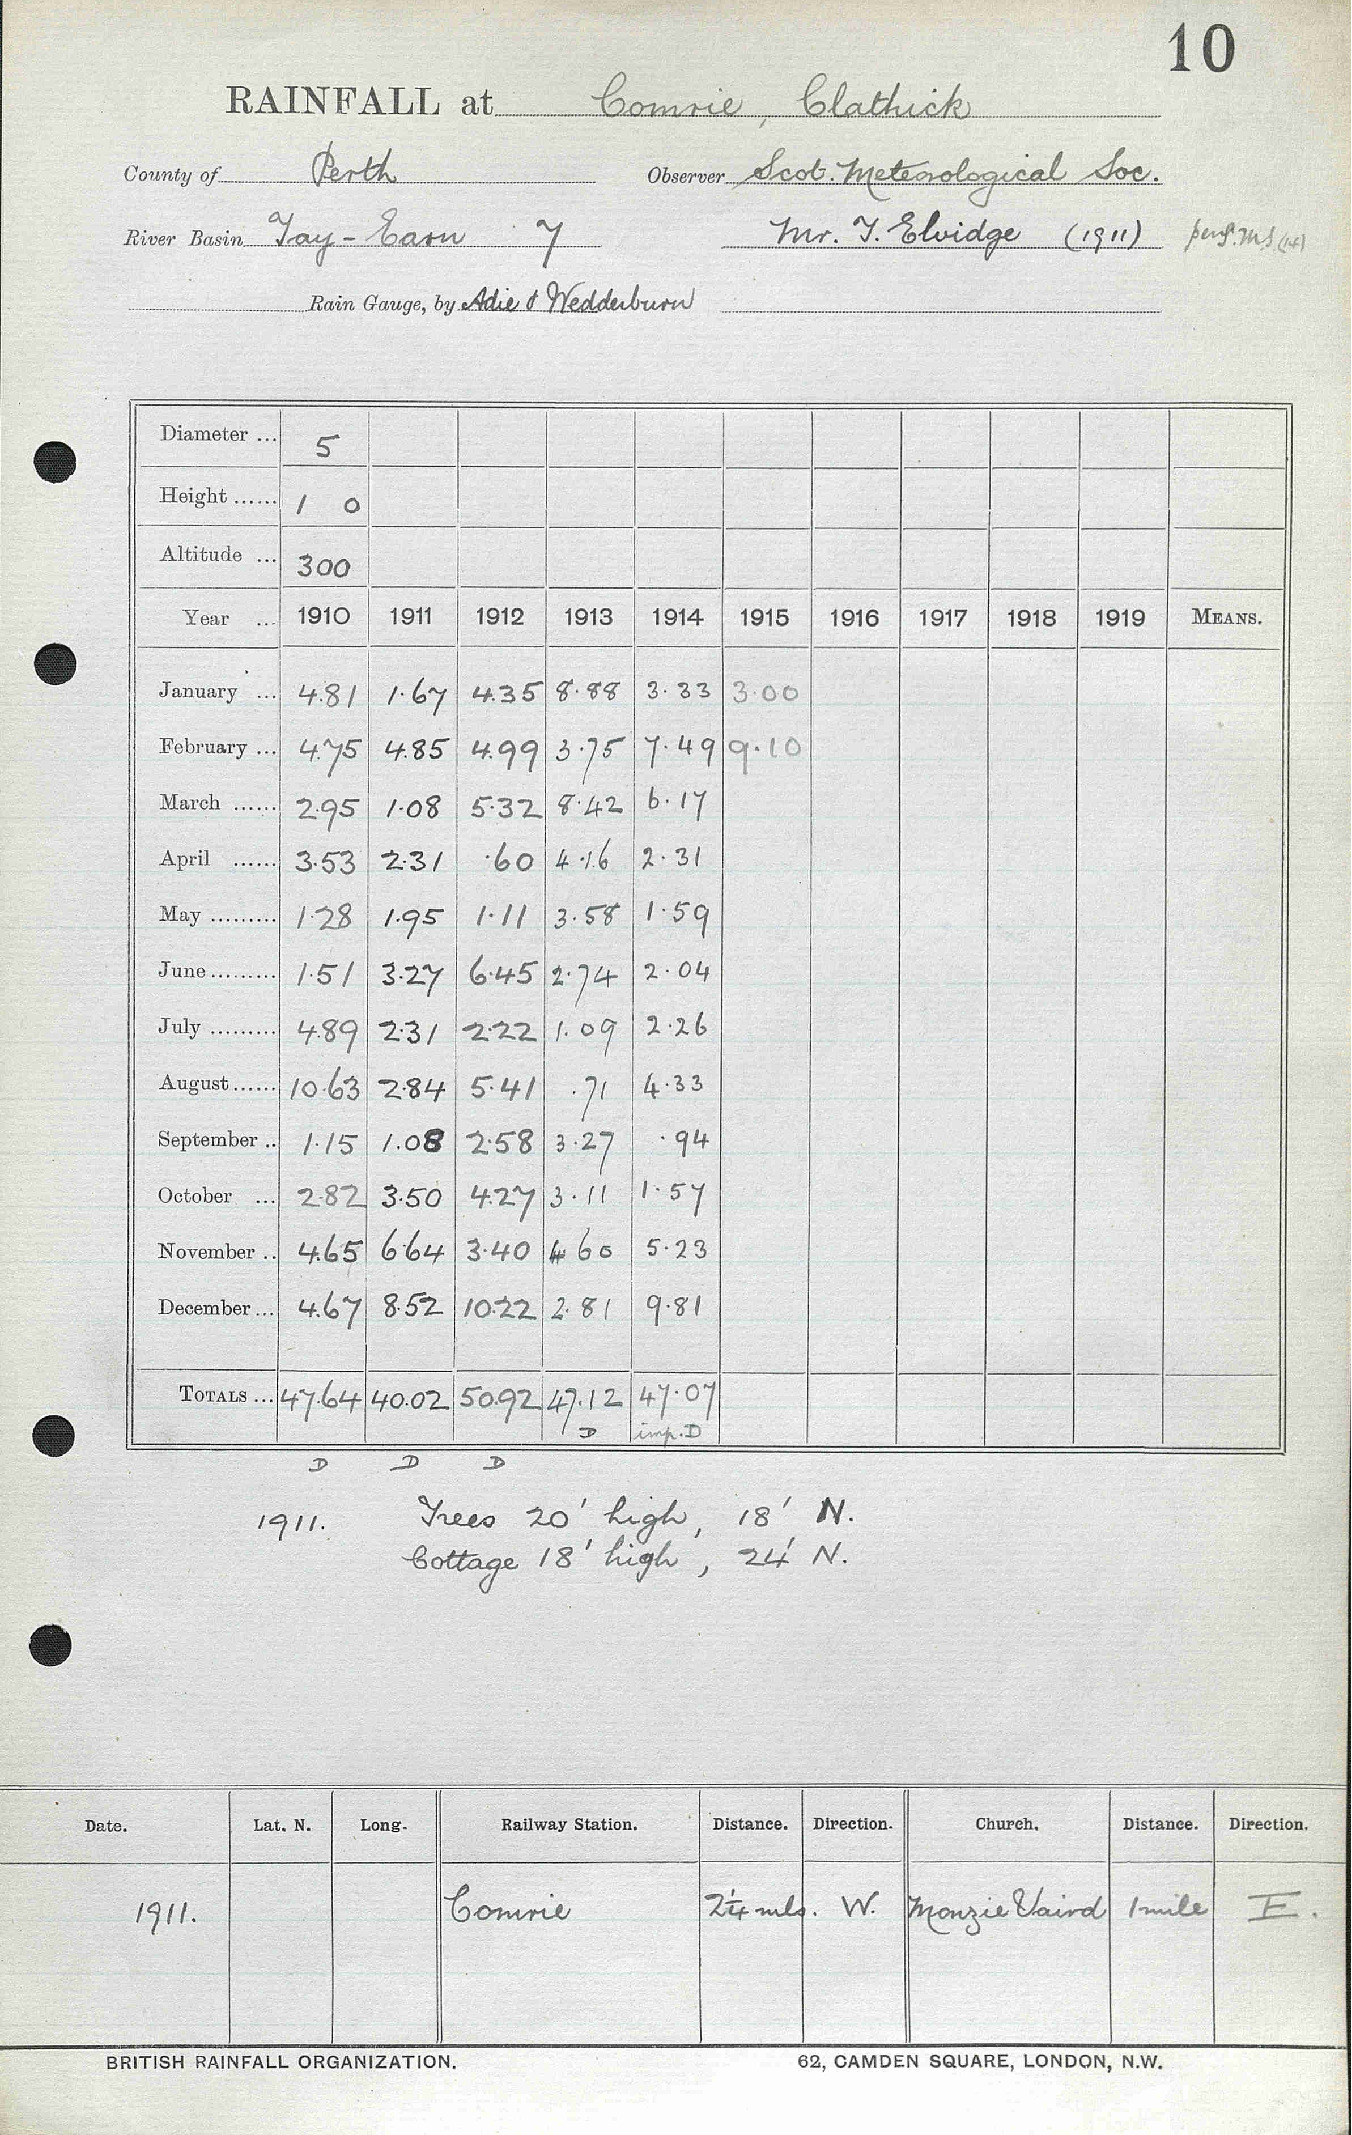 10
RAINFALL at Comrie, Clathick
County of Perth Observer Scot. Meteorological Soc.
River Basin Tay - Earn 7 Mr. T. Elvidge (1911)
Rain Gauge, by Adie & Wedderburn
Diameter ... 5
Height ...... 1 0
Altitude ... 300
Year ... 1910 1911 1912 1913 1914 1915 1916 1917 1918 1919 MEANS.
January ... 4.81 1.67 4.35 8.88 3.33 3.00
February ... 4.75 4.85 4.99 3.75 7.49 9.10
March ...... 2.95 1.08 5.32 8.42 6.17
April ...... 3.53 2.31 .60 4.16 2.31
May ......... 1.28 1.95 1.11 3.58 1.59
June ......... 1.51 3.27 6.45 2.74 2.04
July ......... 4.89 2.31 2.22 1.09 2.26
August ...... 10.63 2.84 5.41 .71 4.33
September .. 1.15 1.08 2.58 3.27 .94
October ... 2.82 3.50 4.27 3.11 1.57
November .. 4.65 6.64 3.40 4 60 5.23
December ... 4.67 8.52 10.22 2.81 9.81
TOTALS ... 47.64 40.02 50.92 47.12 47.07
D imp. D
D D D
1911. Trees 20' high, 18' N.
Cottage 18' high, 24' N.
Date. Lat. N. Long. Railway Station. Distance. Direction. Church. Distance. Direction.
1911. Comrie 2¼ mls. W. Monzie Vaird 1 mile E.
BRITISH RAINFALL ORGANIZATION. 62, CAMDEN SQUARE, LONDON, N.W.